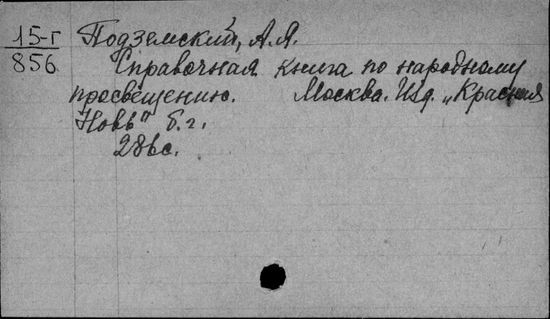 15-Г
856
Подземский, А.Я.
Справочная книга по народному
просвещению. Москва. Изд. „Красная
Новь" б.г.
286с.